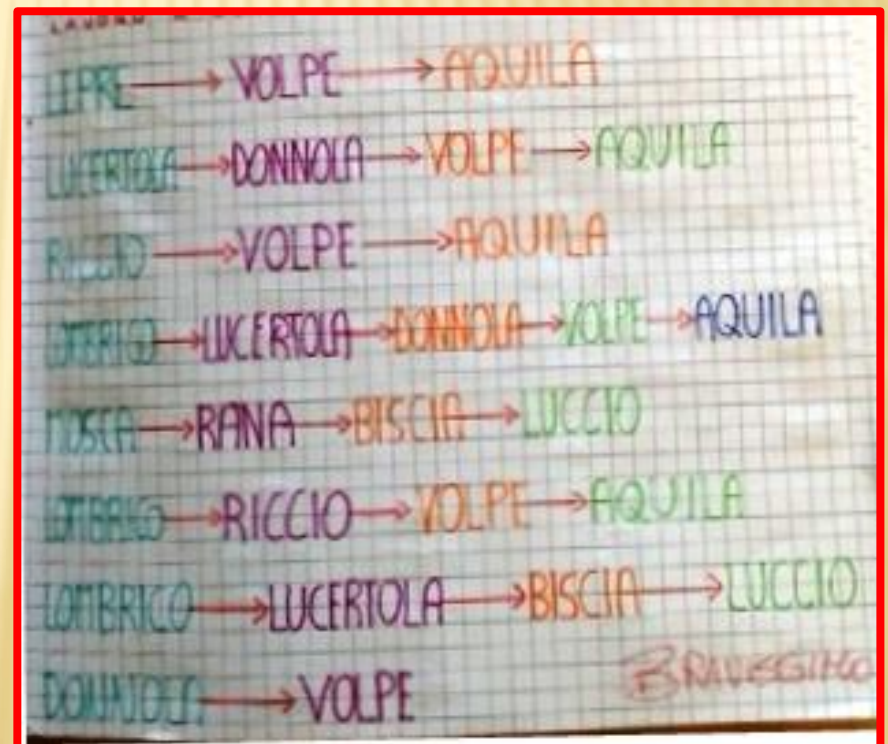 LEPRE → VOLPE → AQUILA
LUCERTOLA → DONNOLA → VOLPE → AQUILA
RICCIO → VOLPE → AQUILA
LOMBRICO → LUCERTOLA → DONNOLA → VOLPE → AQUILA
MOSCA → RANA → BISCIA → LUCCIO
LOMBRICO → RICCIO → VOLPE → AQUILA
LOMBRICO → LUCERTOLA → BISCIA → LUCCIO
DONNOLA → VOLPE
BRAVISSIMO